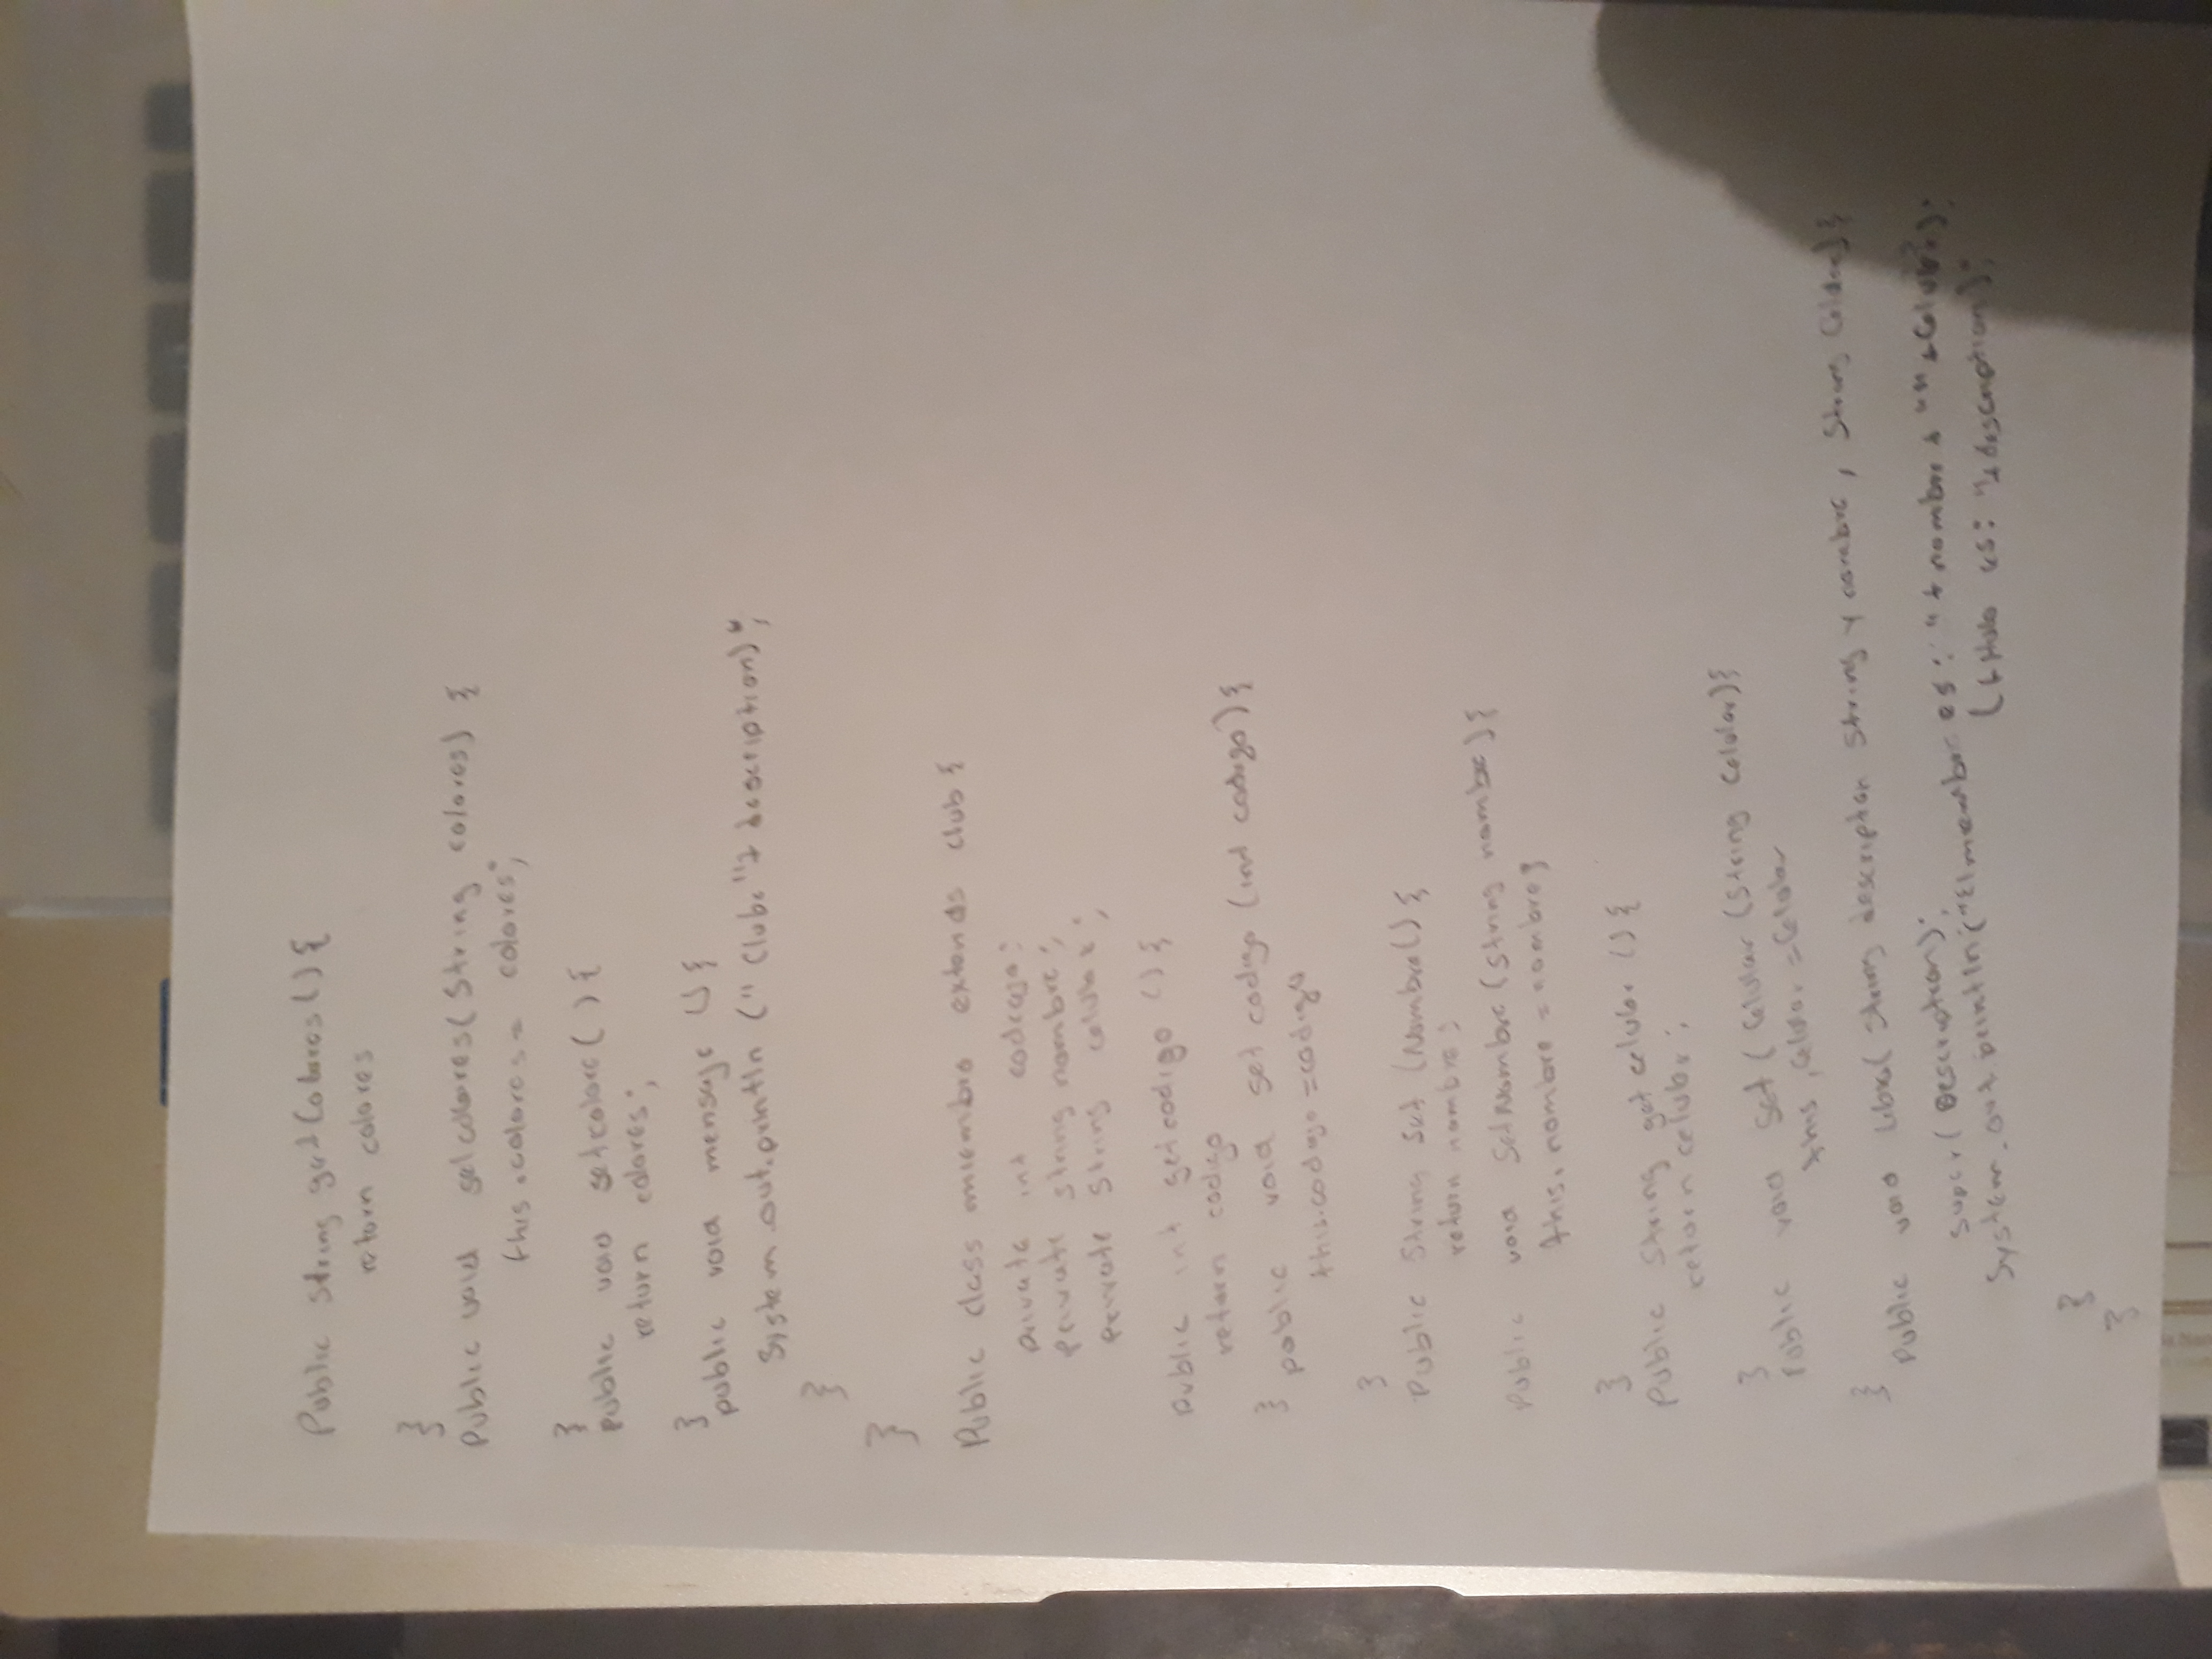 Public String getColores() {
return colores
}
Public void setcolores( String colores) {
this.colores = colores;
}
public void setcolore ( ) {
return colores;
}
public void mensaje () {
System.out.println (" Clube "+ description)";
}
}
Public class miembro extends club {
private int codcogo;
private string nombre;
private String celular;
public int getcodigo () {
return codigo
} public void set codigo (int codigo) {
this.codigo = codigo
}
Public String Set (Nombre() {
return nombre;
Public void SetNombre (String nombre) {
this. nombre = nombre;
}
Public String get celular () {
return celular;
}
Public void Set ( Celular (String Celular) {
this , Celular = Celular
}
Public void Libro( String description String y nombre, String Celular) {
super( Description);
System.out.println("El miembro es: "+ nombre + "" + Celular);
( es: "+ description);
}
}